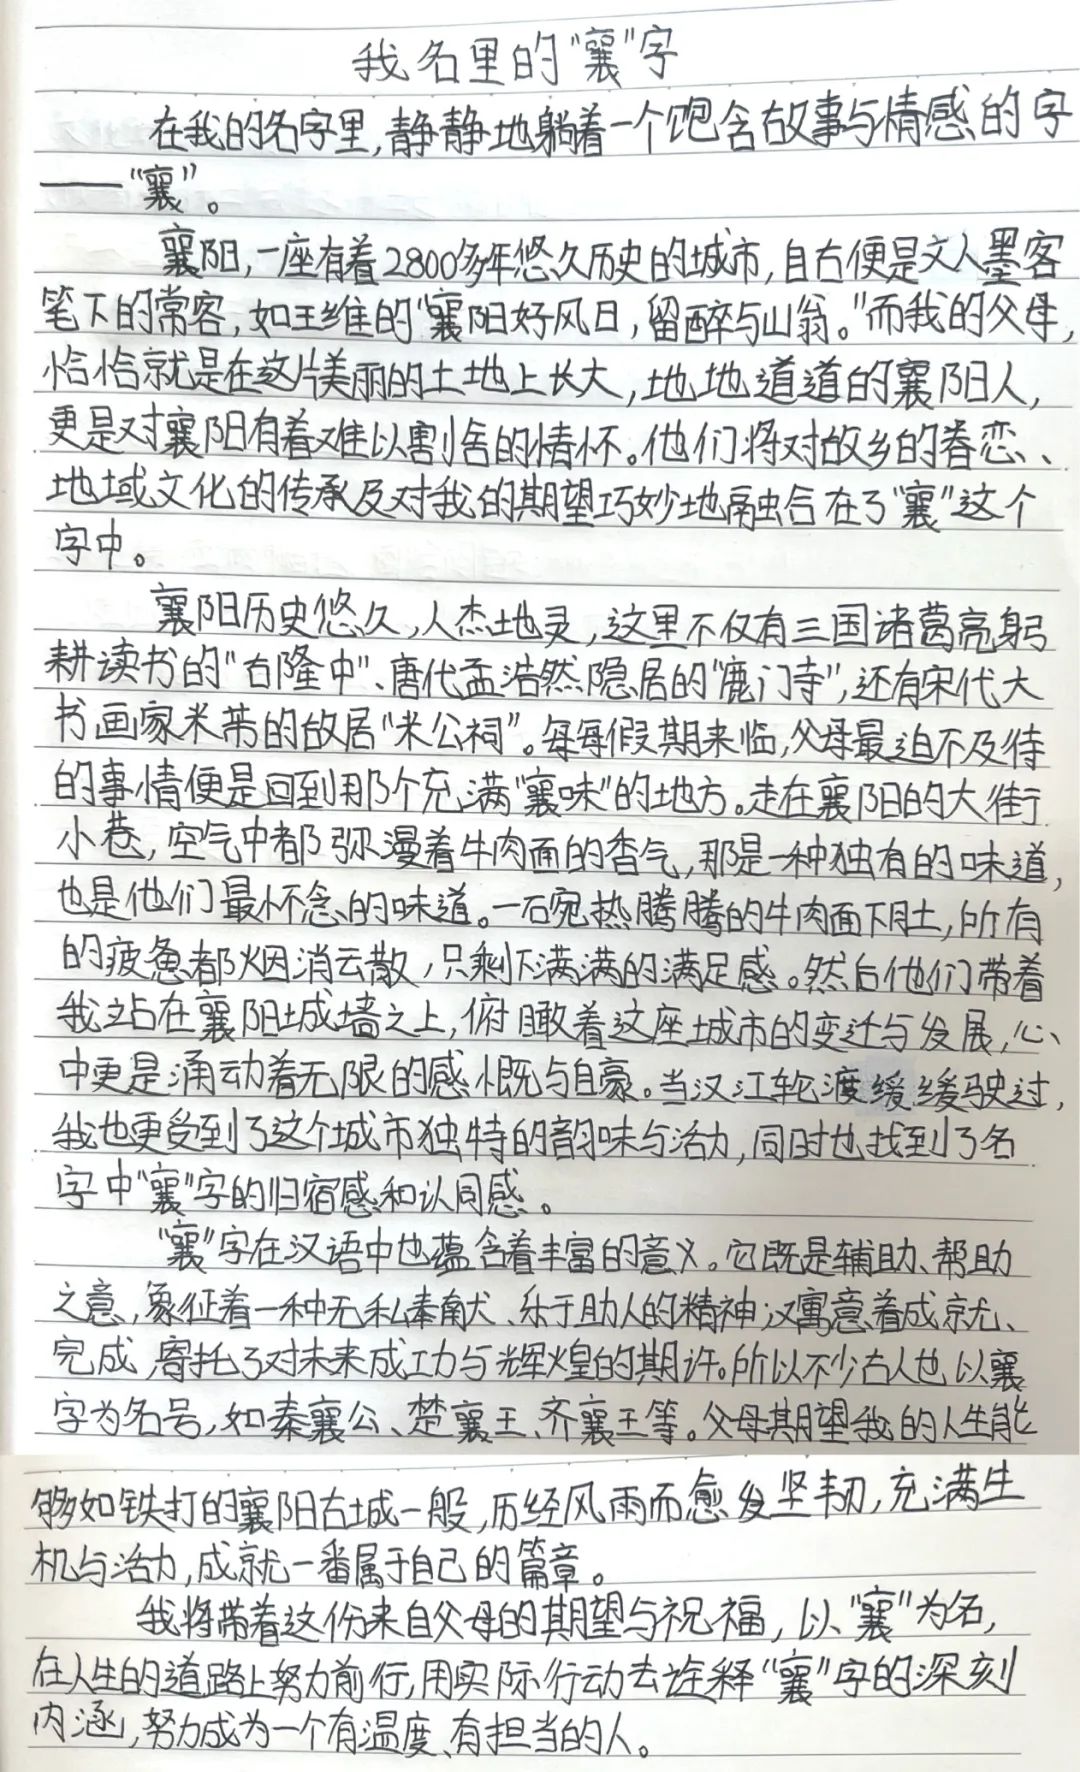 我名里的“襄”字
在我的名字里,静静地躺着一个饱含故事与情感的字
——“襄”。
襄阳,一座有着2800多年悠久历史的城市,自古便是文人墨客
笔下的常客,如王维的“襄阳好风日,留醉与山翁。”而我的父母,
恰恰就是在这片美丽的土地上长大,地地道道的襄阳人,
更是对襄阳有着难以割舍的情怀。他们将对故乡的眷恋、
地域文化的传承及对我的期望巧妙地融合在了“襄”这个
字中。
襄阳历史悠久,人杰地灵,这里不仅有三国诸葛亮躬
耕读书的“古隆中”、唐代孟浩然隐居的“鹿门寺”,还有宋代大
书画家米芾的故居“米公祠”。每每假期来临,父母最迫不及待
的事情便是回到那个充满“襄味”的地方。走在襄阳的大街
小巷,空气中都弥漫着牛肉面的香气,那是一种独有的味道,
也是他们最怀念的味道。一碗热腾腾的牛肉面下肚,所有
的疲惫都烟消云散,只剩下满满的满足感。然后他们带着
我站在襄阳城墙之上,俯瞰着这座城市的变迁与发展,心
中更是涌动着无限的感慨与自豪。当汉江轮渡缓缓驶过,
我也更受到了这个城市独特的韵味与活力,同时也找到了名
字中“襄”字的归宿感和认同感。
“襄”字在汉语中也蕴含着丰富的意义。它既是辅助、帮助
之意,象征着一种无私奉献、乐于助人的精神,又寓意着成就、
完成,寄托了对未来成功与辉煌的期许。所以不少古人也以襄
字为名号,如秦襄公、楚襄王、齐襄王等。父母期望我的人生能
够如铁打的襄阳古城一般,历经风雨而愈发坚韧,充满生
机与活力,成就一番属于自己的篇章。
我将带着这份来自父母的期望与祝福,以“襄”为名,
在人生的道路上努力前行,用实际行动去诠释“襄”字的深刻
内涵,努力成为一个有温度、有担当的人。